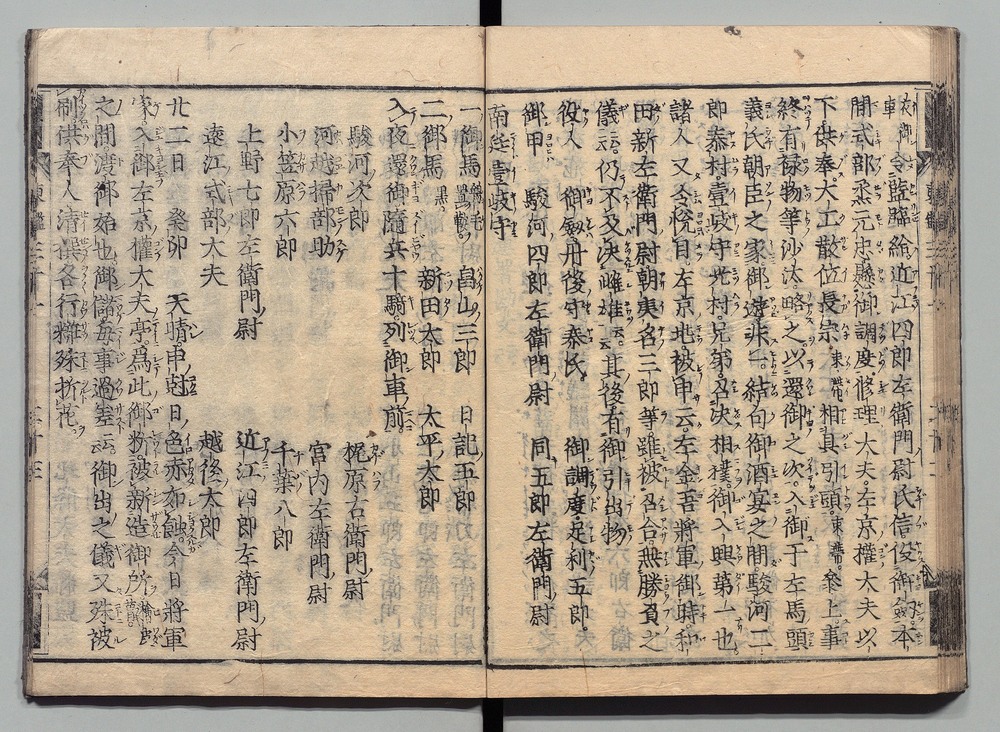 令監臨給近江四郎左衛門尉氏信役御劔本
間式部丞元忠懸御調度修理大夫左京權大夫以
下供奉大工散位長宗束帶相具引頭束帶參上事
終有禄物等沙汰略之以還御之次入御于左馬頭
義氏朝臣之家御遊非一結句御酒宴之間駿河二
即泰村壹岐守光村兄弟召決相撲御入興第一也
諸人又令悦目左京兆被申云左金吾將軍御時和
田新左衛門尉朝夷名三郎等雖被召合無勝負之
儀云云仍不及決雌雄云云其後有御引出物
役人 御劔丹後守泰氏 御調度足利五郎
御甲 駿河四郎左衛門尉 同五郎左衛門尉
南 壹岐守
一御馬 畠山三郎 日記五郎
二御馬黒 新田太郎 太平太郎
入夜還御隨兵十騎列御車前
駿河次郎 梶原右衛門尉
河越掃部助 宮内左衛門尉
小笠原六郎 千葉八郎
上野七郎左衛門尉 近江四郎左衛門尉
遠江式部大夫 越後太郎
廿二日 癸卯 天晴申尅日色赤如蝕今日將軍
家入御左京權大夫亭爲此御料被新造御所檜皮葺
之間渡御始也御儲毎事過差云云御出之儀又殊被
刷供奉人清撰各行粧殊折花